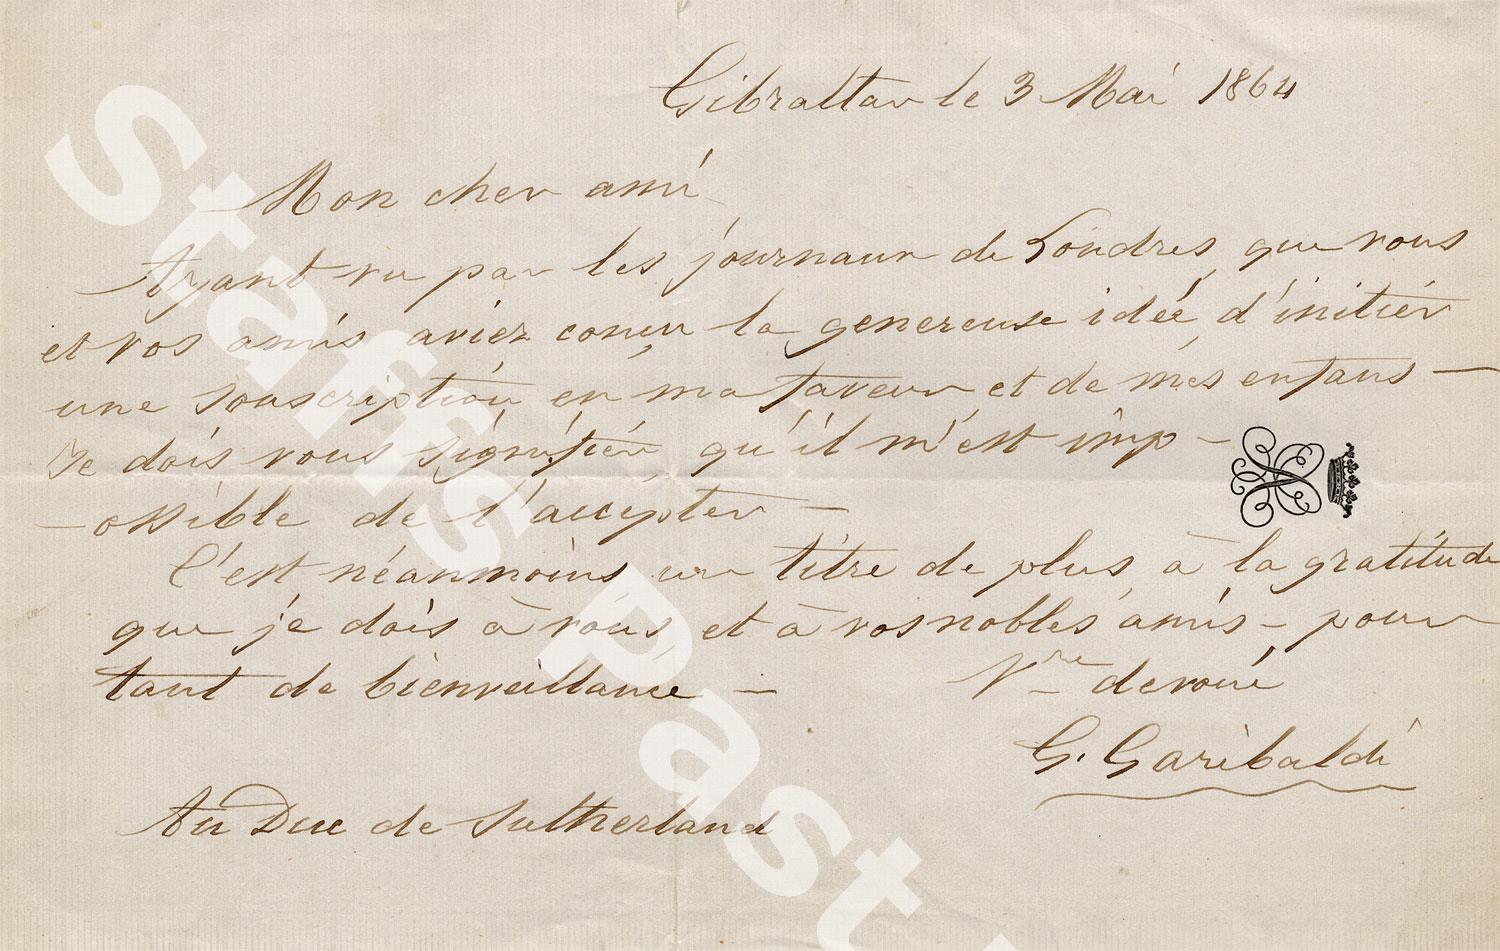 Gibraltar le 3 Mai 1864
Mon cher ami
Ayant vu par les journaux de Londres que vous
et vos amis aviez conçu la genereuse idée d'initiér
une souscription en ma faveur et de mes enfans —
Je dois vous signifiér qu'il m'est imp -
- ossible de l'accépter —
C'est néanmoins un titre de plus à la gratitude
que je dois à vous, et à vos nobles amis - pour
tant de bienveillance —
Vre devoué
G. Garibaldi
Au Duc de Sutherland
Staffs Past